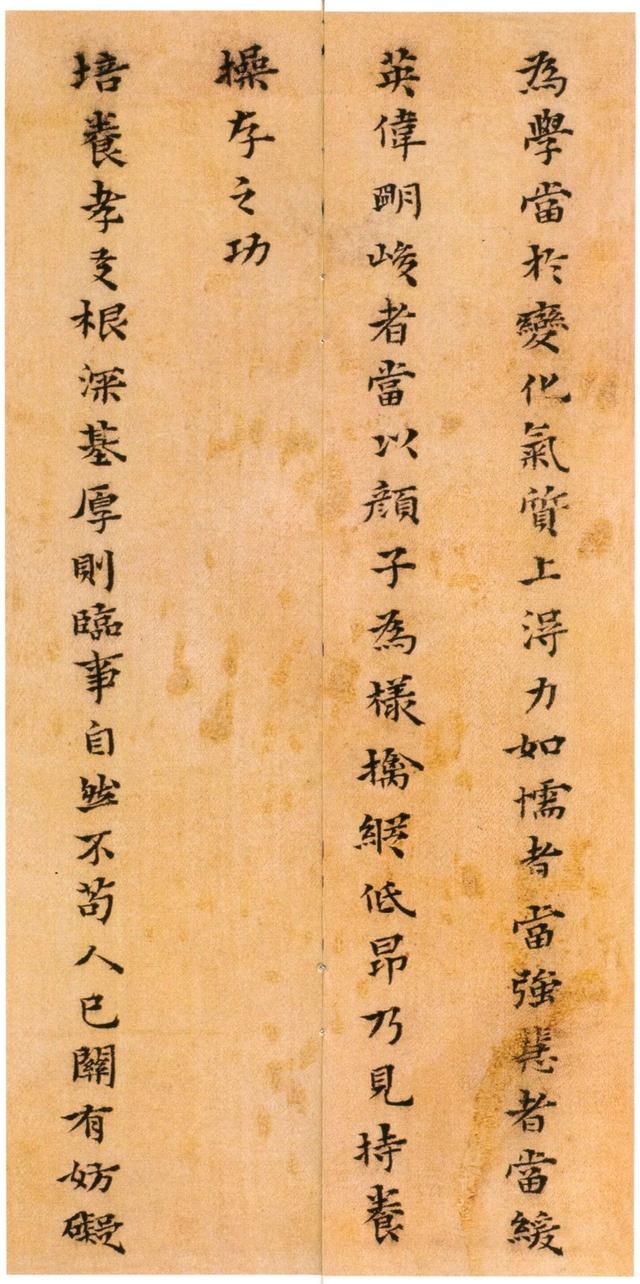 為學當於變化氣質上得力如懦者當強者當緩
英偉明峻者當以顏子為樣擒縱低昂乃見持養
操存之功
培養孝友根深基厚則臨事自然不苟人已關有妨礙